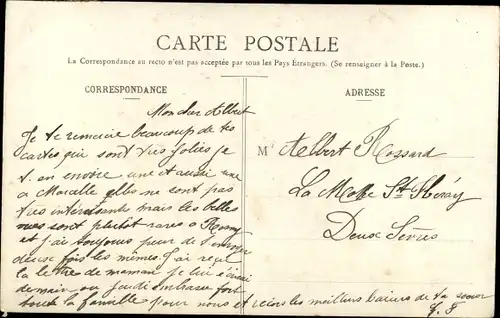 CARTE POSTALE
La Correspondance au recto n'est pas acceptée par tous les Pays Étrangers. (Se renseigner à la Poste.)
CORRESPONDANCE
ADRESSE
Mon cher Albert
Je te remercie beaucoup de tes
cartes qui sont très jolies je
t'en envoie une et aussi une
a Marcelle elles ne sont pas
très intéressante mais les belles
vues sont plutôt rares a Rosny
et j'ai toujours peur de t'envoyer
deux fois les mêmes. J'ai reçu
la lettre de maman je lui écrirai
demain ou jeudi embrasse fort
toute la famille pour nous et reçois les meilleurs baisers de ta soeur
M Albert Rossard
La Mothe St Héray
Deux Sèvres